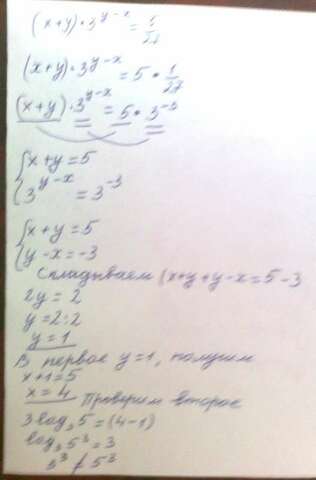 (x+y)·3^{y-x} = 1/27
(x+y)·3^{y-x} = 5·1/27
(x+y)·3^{y-x} = 5·3^{-3}
{x+y=5
{3^{y-x} = 3^{-3}
{x+y=5
{y-x=-3
Складываем (x+y+y-x=5-3
2y=2
y=2:2
y=1
В первое y=1, получим
x+1=5
x=4 Проверим второе
3log₅5=(4-1)
log₅5³=3
5³ ≠ 5³